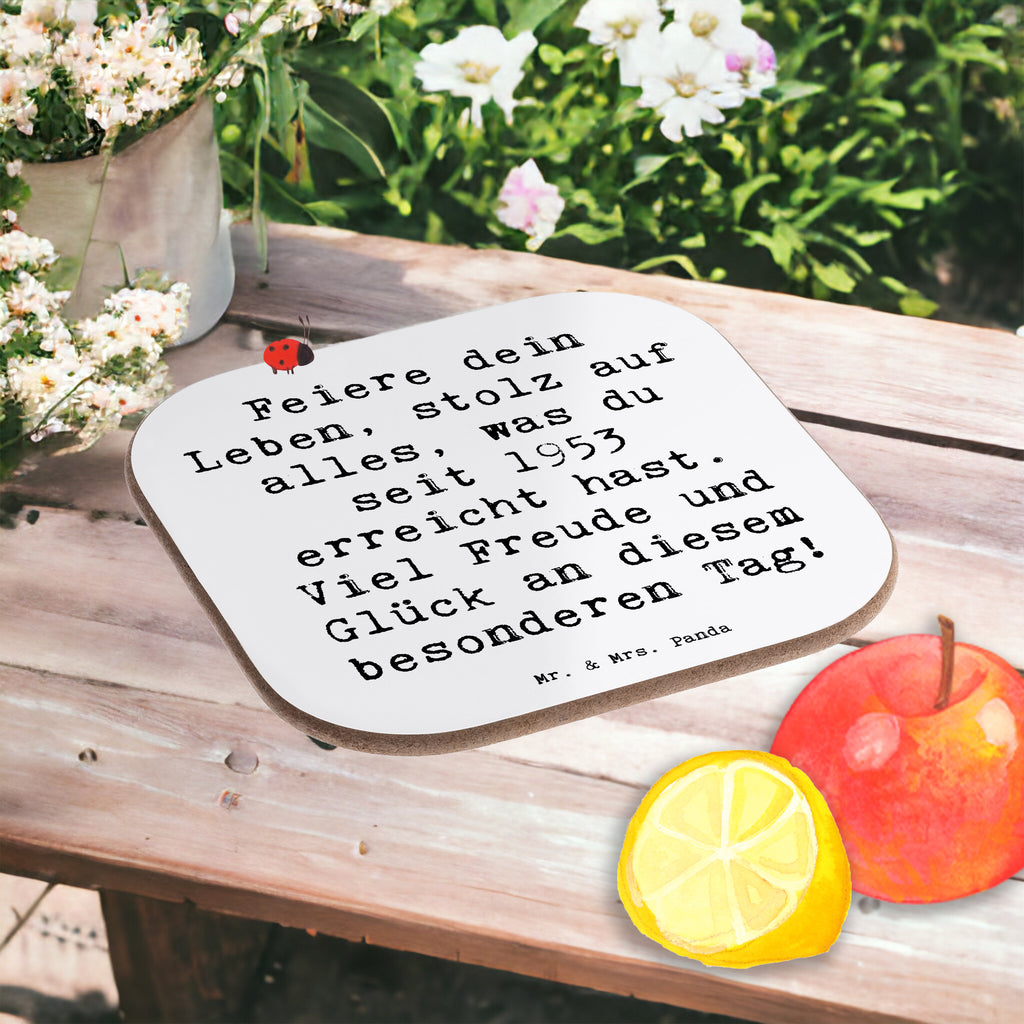 Feiere dein
Leben, stolz auf
alles, was du
seit 1953
erreicht hast.
Viel Freude und
Glück an diesem
besonderen Tag!
Mr. & Mrs. Panda